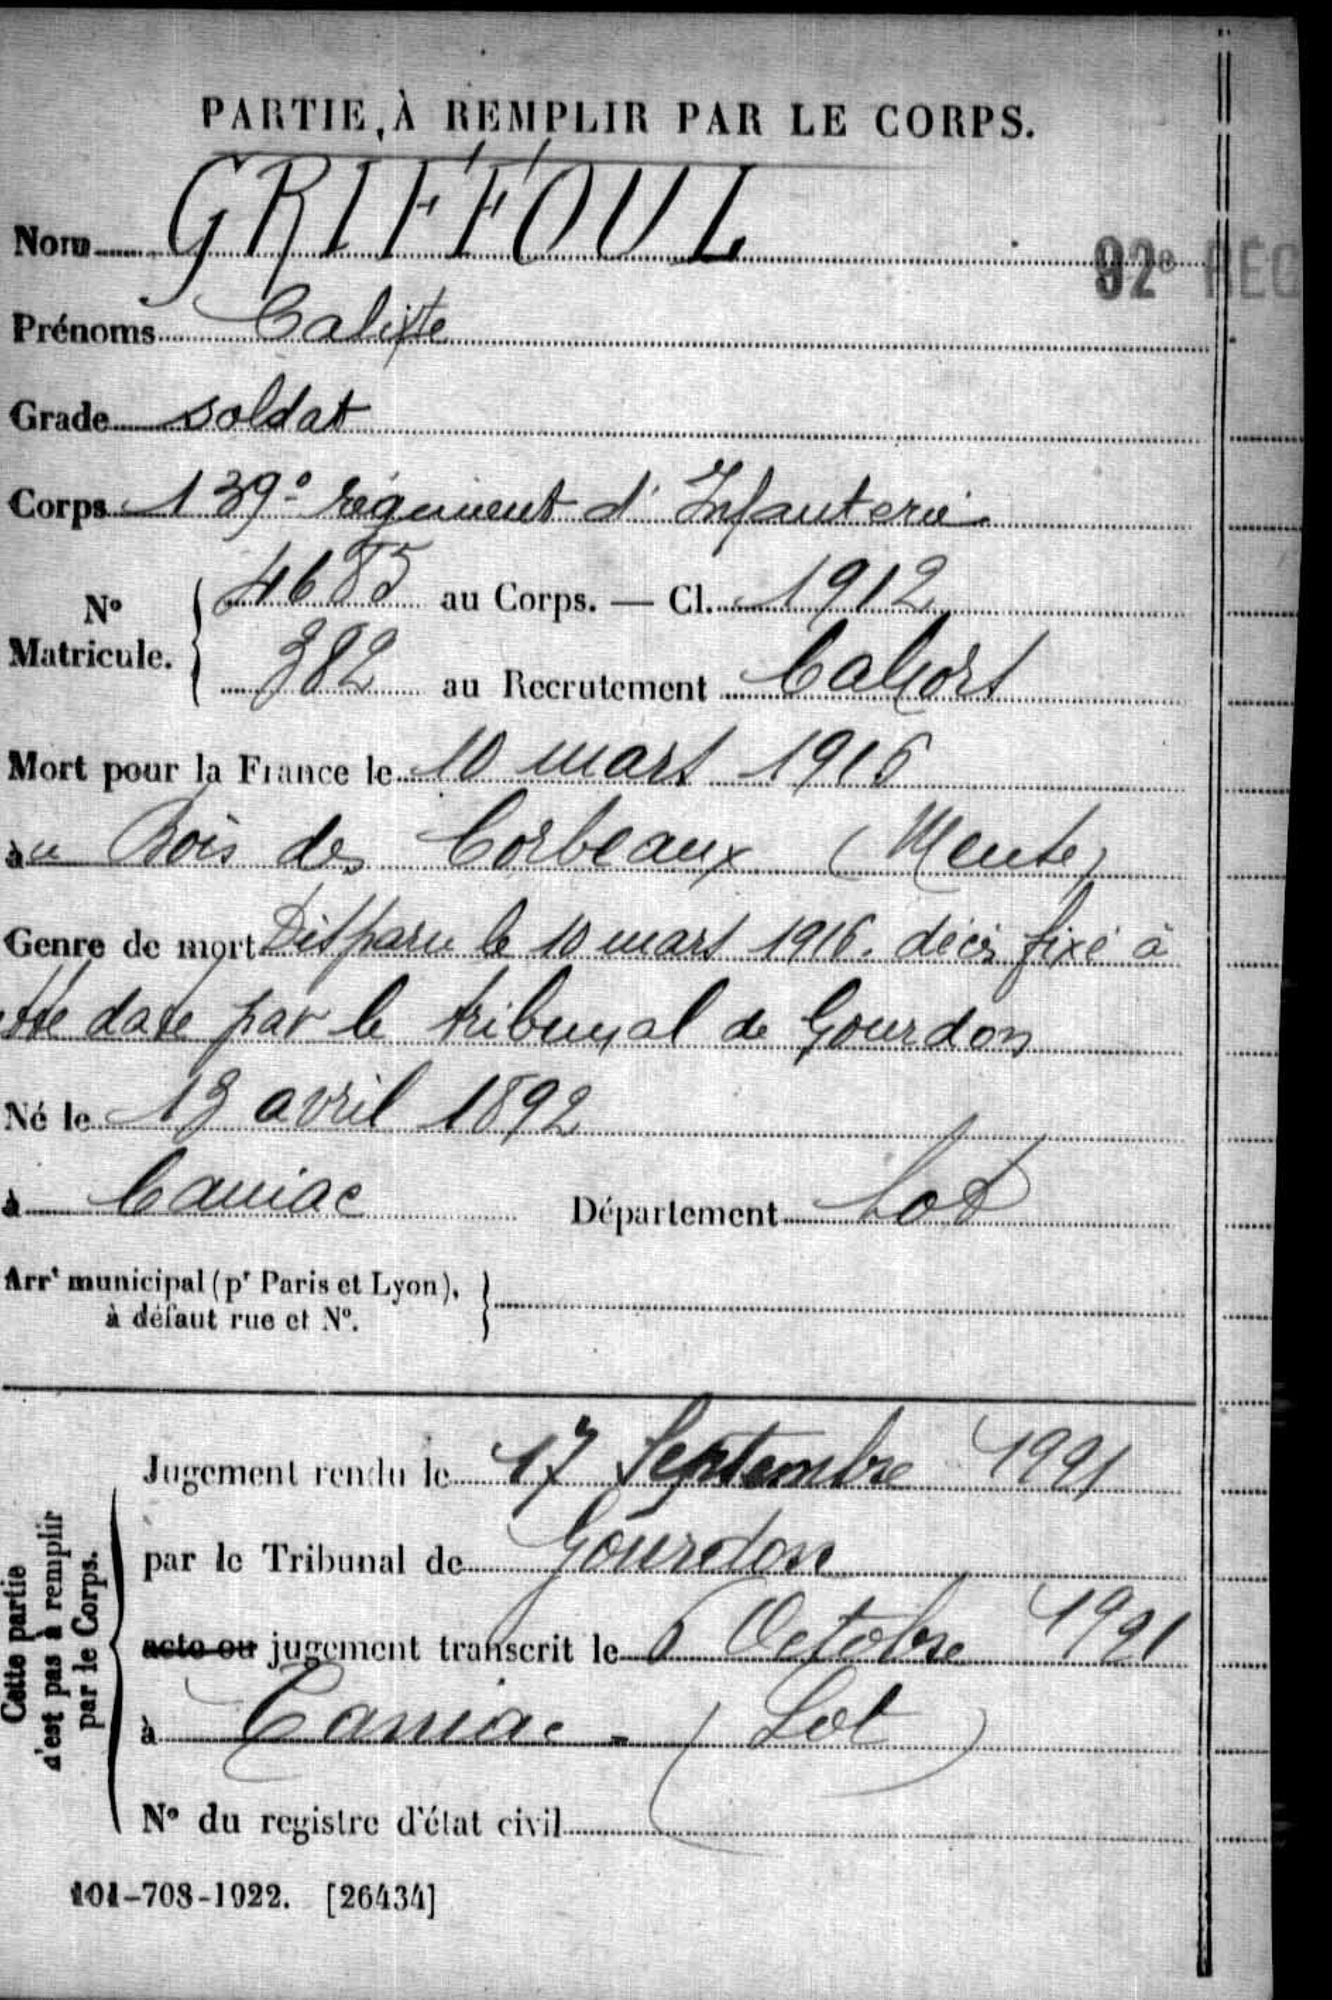 PARTIE À REMPLIR PAR LE CORPS.
Nom GRIFFOUL
92e REG
Prénoms Calixte
Grade soldat
Corps 139e régiment d'Infanterie
N° Matricule. 4685 au Corps. — Cl. 1912
382 au Recrutement Cahors
Mort pour la France le 10 mars 1916
au Bois des Corbeaux (Meuse)
Genre de mort Disparu le 10 mars 1916. décès fixé à
cette date par le tribunal de Gourdon
Né le 13 avril 1892
à Caniac Département Lot
Arrt municipal (pr Paris et Lyon),
à défaut rue et N°.
Cette partie
n'est pas à remplir
par le Corps.
Jugement rendu le 17 Septembre 1921
par le Tribunal de Gourdon
acte ou jugement transcrit le 6 Octobre 1921
à Caniac - (Lot)
N° du registre d'état civil
101-708-1922. [26434]